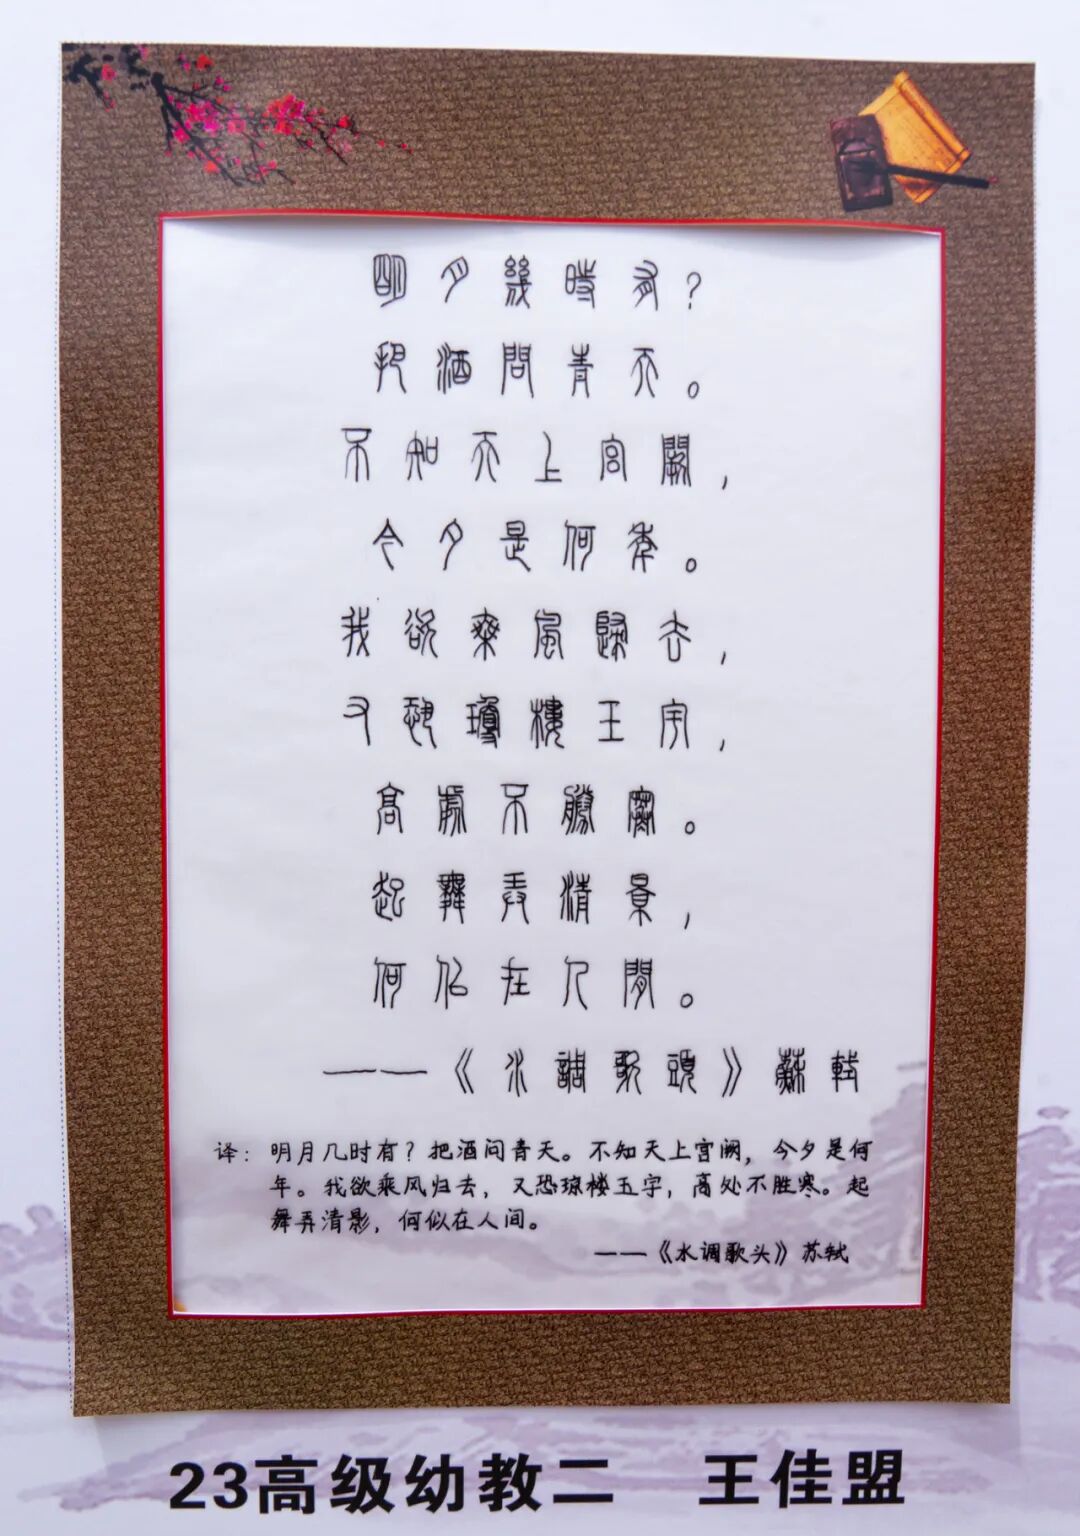 明月幾時有？
把酒問青天。
不知天上宮闕，
今夕是何年。
我欲乘風歸去，
又恐瓊樓玉宇，
高處不勝寒。
起舞弄清影，
何似在人間。
——《水調歌頭》蘇軾
译：明月几时有？把酒问青天。不知天上宫阙，今夕是何
年。我欲乘风归去，又恐琼楼玉宇，高处不胜寒。起
舞弄清影，何似在人间。
——《水调歌头》苏轼
23高级幼教二 王佳盟